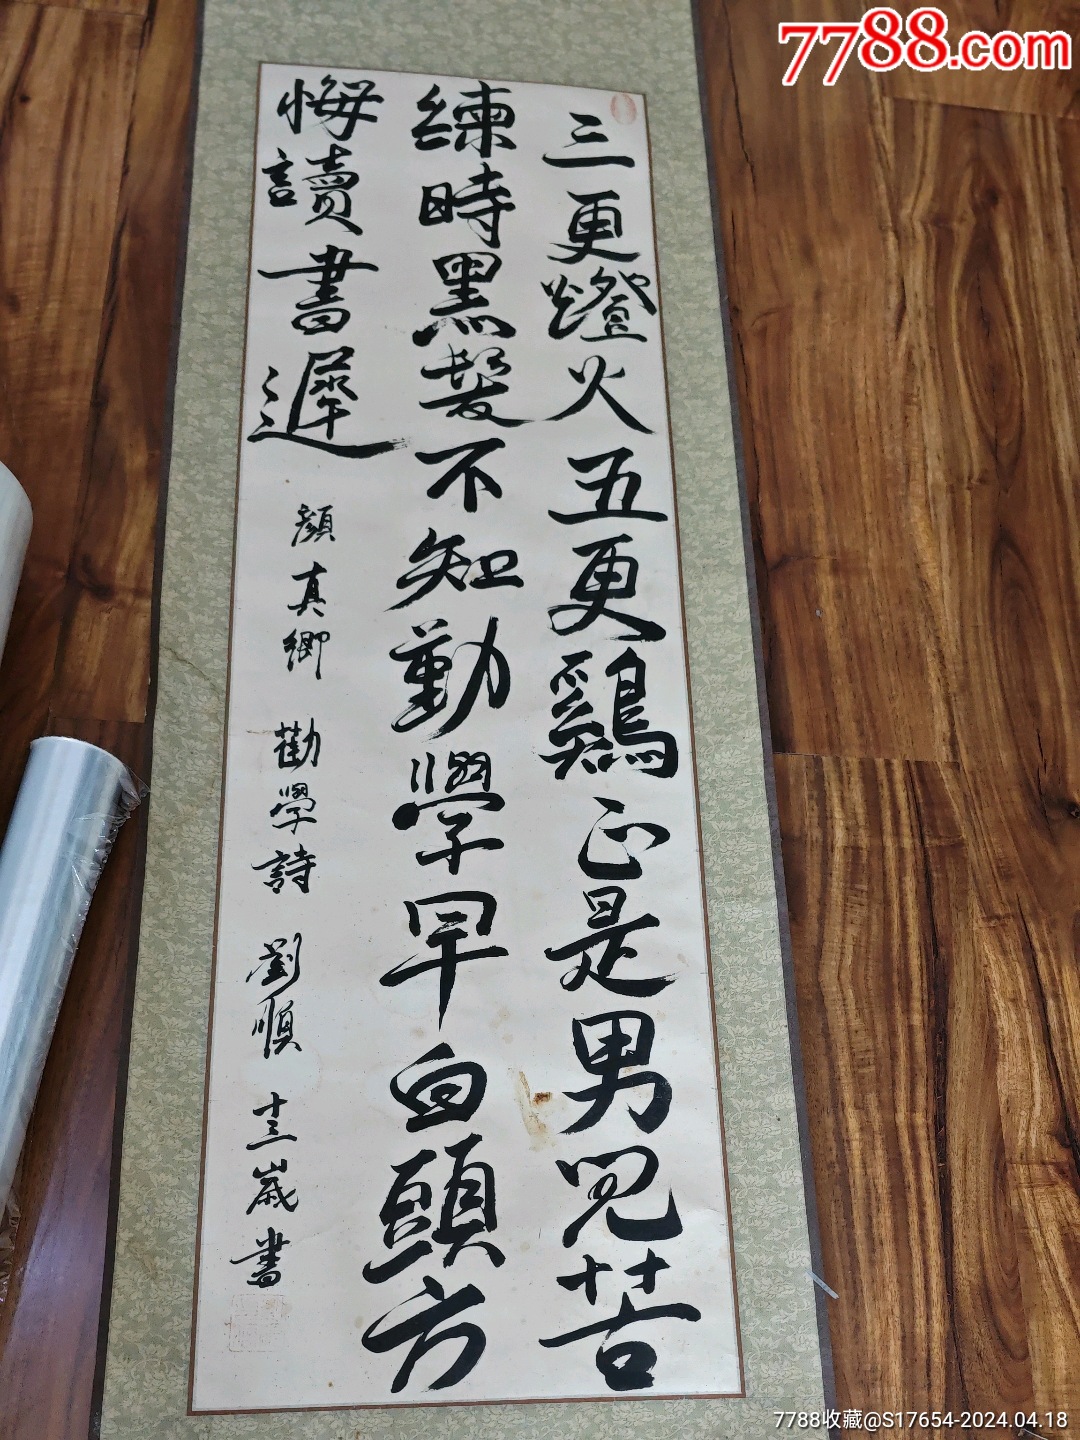 三更燈火五更鷄正是男兒苦
練時黑髮不知勤學早白頭方
悔讀書遲
顏真卿 勸學詩 劉順 十三歲書
7788.com
7788收藏@S17654-2024.04.18